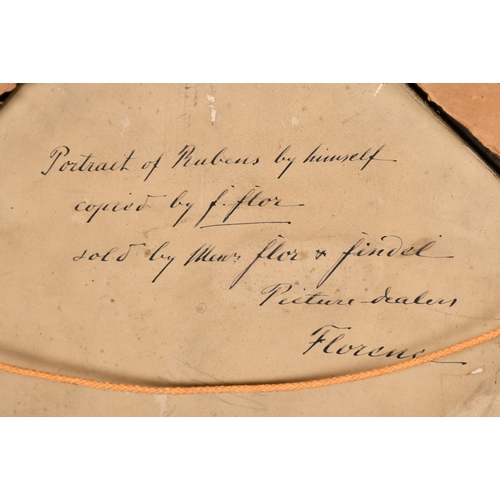 Portrait of Rubens by himself
copied by f. flor
sold by Mess flor & findel
Picture dealers
Florence